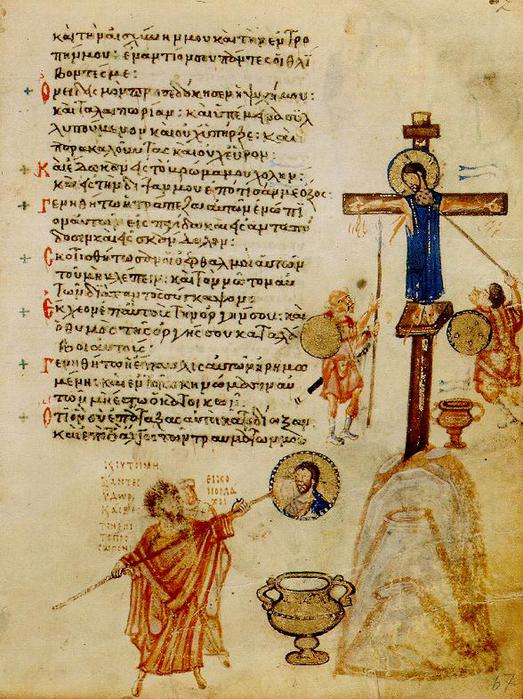 καὶ τὴν αἰσχύνην μου καὶ τὴν ἐντρο
πήν μου: ἐναντίον σου πάντες οἱ θλί
βοντές με:
Ὀνειδισμὸν προσεδόκησεν ἡ ψυχή μου:
καὶ ταλαιπωρίαν: καὶ ὑπέμεινα συλ
λυπούμενον καὶ οὐχ ὑπῆρξε: καὶ
παρακαλοῦντας καὶ οὐχ εὗρον
Καὶ ἔδωκαν εἰς τὸ βρῶμά μου χολήν:
καὶ εἰς τὴν δίψαν μου ἐπότισάν με ὄξος:
Γενηθήτω ἡ τράπεζα αὐτῶν ἐνώπι
ον αὐτῶν εἰς παγίδα καὶ εἰς ἀνταπό
δοσιν καὶ εἰς σκάνδαλον:
Σκοτισθήτωσαν οἱ ὀφθαλμοὶ αὐτῶν
τοῦ μὴ βλέπειν: καὶ τὸν νῶτον αὐ
τῶν διὰ παντὸς σύγκαμψον:
Ἔκχεον ἐπ αὐτοὺς τὴν ὀργήν σου: καὶ
ὁ θυμὸς τῆς ὀργῆς σου καταλά
βοι αὐτούς:
Γενηθήτω ἡ ἔπαυλις αὐτῶν ἠρημω
μένη: καὶ ἐν τοῖς σκηνώμασιν αὐ
τῶν μὴ ἔστω ὁ κατοικῶν:
Ὅτι ὃν σὺ ἐπάταξας αὐτοὶ κατεδίωξαν
καὶ ἐπὶ τὸ ἄλγος τῶν τραυμάτων μου
ΞΑΝΤΕϹ
ΥΔΩΡ
ΕΙΚΟ
ΝΟΜΑ
ΧΟΙ
67